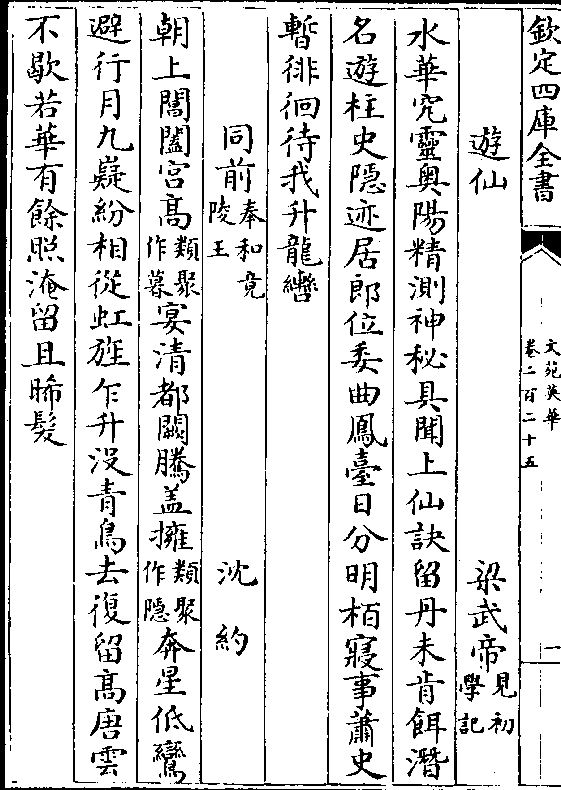 欽定四庫全書
文苑英華
卷二百二十五
一
遊仙 梁武帝見初學記
水華究靈奧陽精測神秘具聞上仙訣留丹未肯餌潛
名遊柱史隱迹居郎位委曲鳳臺日分明栢寢事蕭史
暫徘徊待我升龍轡
同前奉和竟陵王 沈約
朝上閶闔宮高類聚作暮宴清都闕騰盖擁類聚作隱奔星低鸞
避行月九嶷紛相從虹旌乍升没青鳥去復留高唐雲
不歇若華有餘照淹留且晞髮